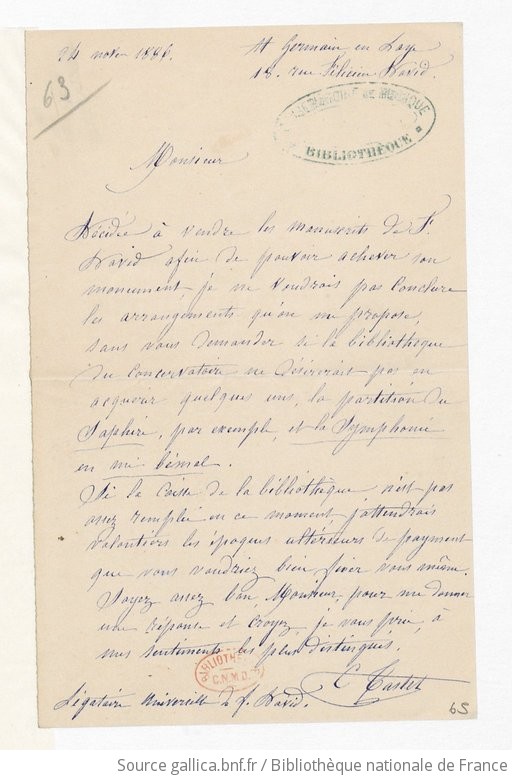 24 novbre 1886.
St Germain en Laye
18. rue Félicien David.
63
BIBLIOTHÈQUE
Monsieur
Décidée à vendre les manuscrits de F.
David afin de pouvoir achever son
monument, je ne voudrais pas conclure
les arrangements qu'on me propose,
sans vous demander si la bibliothèque
du Conservatoire ne désirerait pas en
acquérir quelques uns, la partition du
Saphire, par exemple, et la Symphonie
en mi bémol.
Si la caisse de la bibliothèque n'est pas
assez remplie en ce moment j'attendrais
volontiers les époques ultérieures de payement
que vous voudriez bien fixer vous même.
Soyez assez bon, Monsieur, pour me donner
une réponse et croyez, je vous prie, à
mes sentiments les plus distingués.
C Tastet
Légataire Universelle de F. David.
BIBLIOTHÈ
C.N.M.D.
65
Source gallica.bnf.fr / Bibliothèque nationale de France